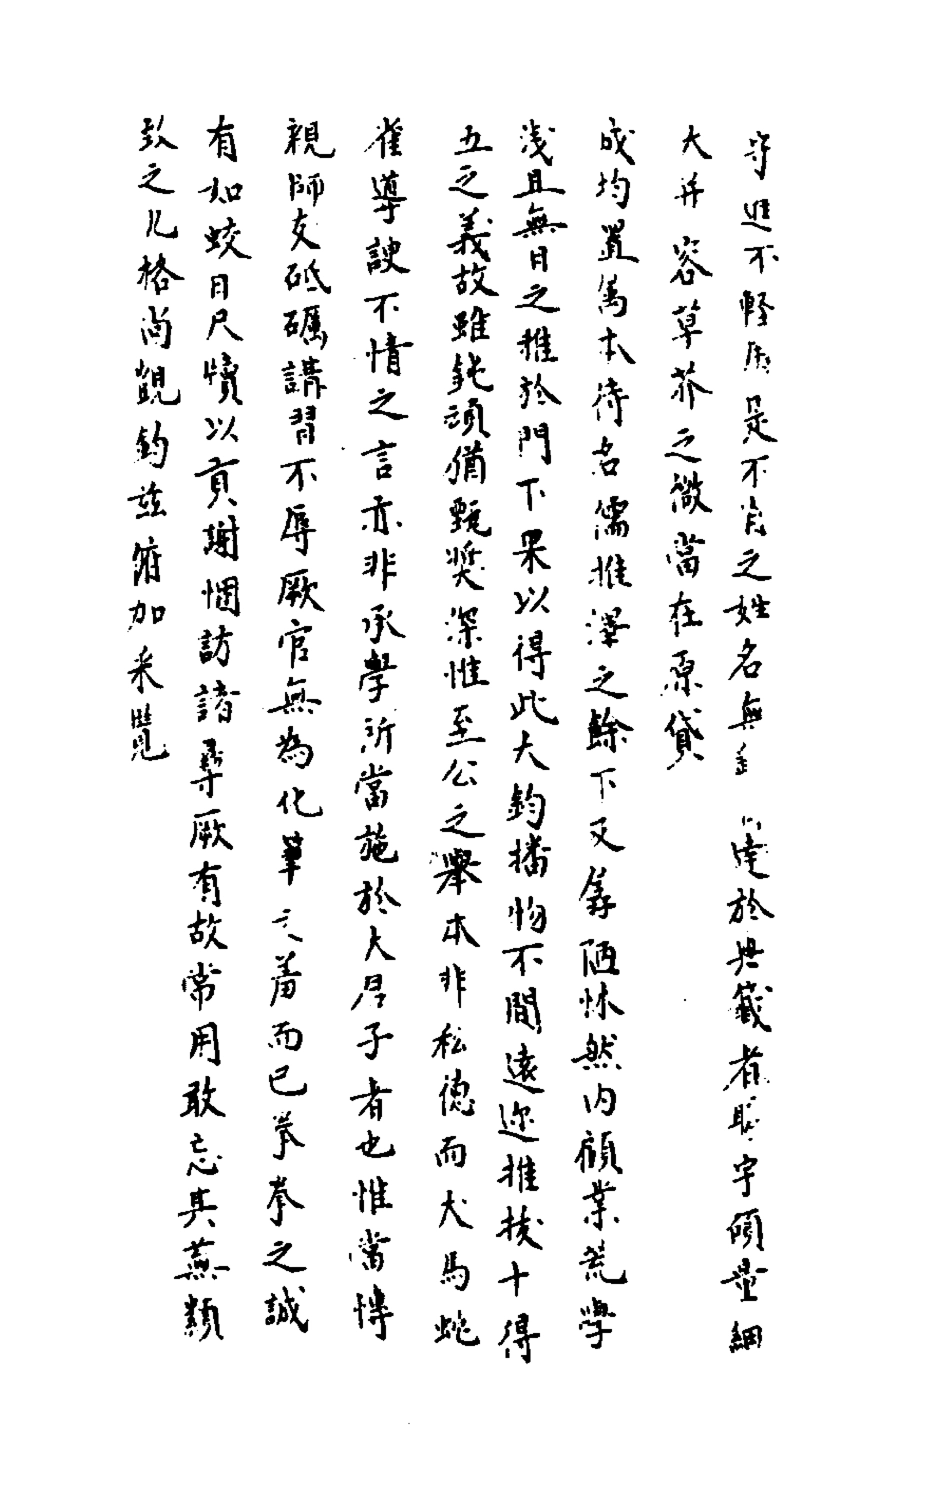 守進不輕退是不肖之姓名無達於典籤者聰宇碩量網
大并容草芥之微當在原貸
成均置篤本待名儒推澤之餘下又孱陋怵然内顧業荒學
淺且無日之雅於門下果以得此大鈞播物不間遠邇推拔十得
五之義故雖鈍頑猶甄奬深惟至公之舉本非私德而犬馬蛇
雀導諛不情之言亦非承學所當施於大君子者也惟當博
親師友砥礪講習不辱厥官無為化筆之羞而已拳拳之誠
有如皎日尺牘以貢謝悃訪諸尋厥有故常用敢忘其蕪纇
之凡格尚覬鈞兹俯加采覽